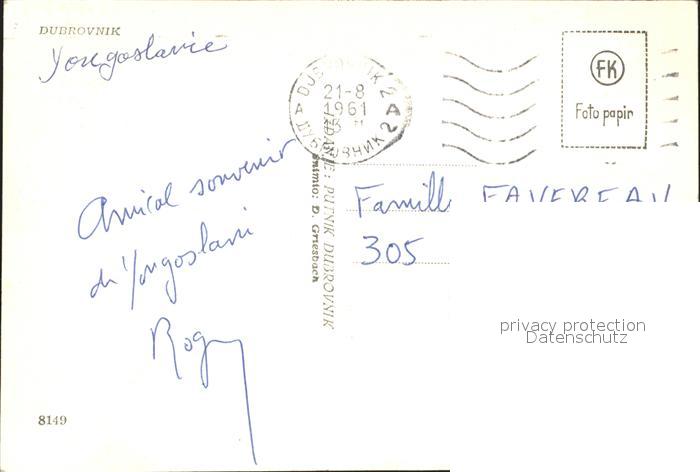 DUBROVNIK
Yougoslavie
DUBROVNIK 2
21-8
1961
A A
ДУБРОВНИК 2
FK
Foto papir
Amical souvenir
de Yougoslavi
Roger
IZDANJE: PUTNIK DUBROVNIK
Snimio: D. Griesbach
Famill FAVEREAU
305
privacy protection
Datenschutz
8149